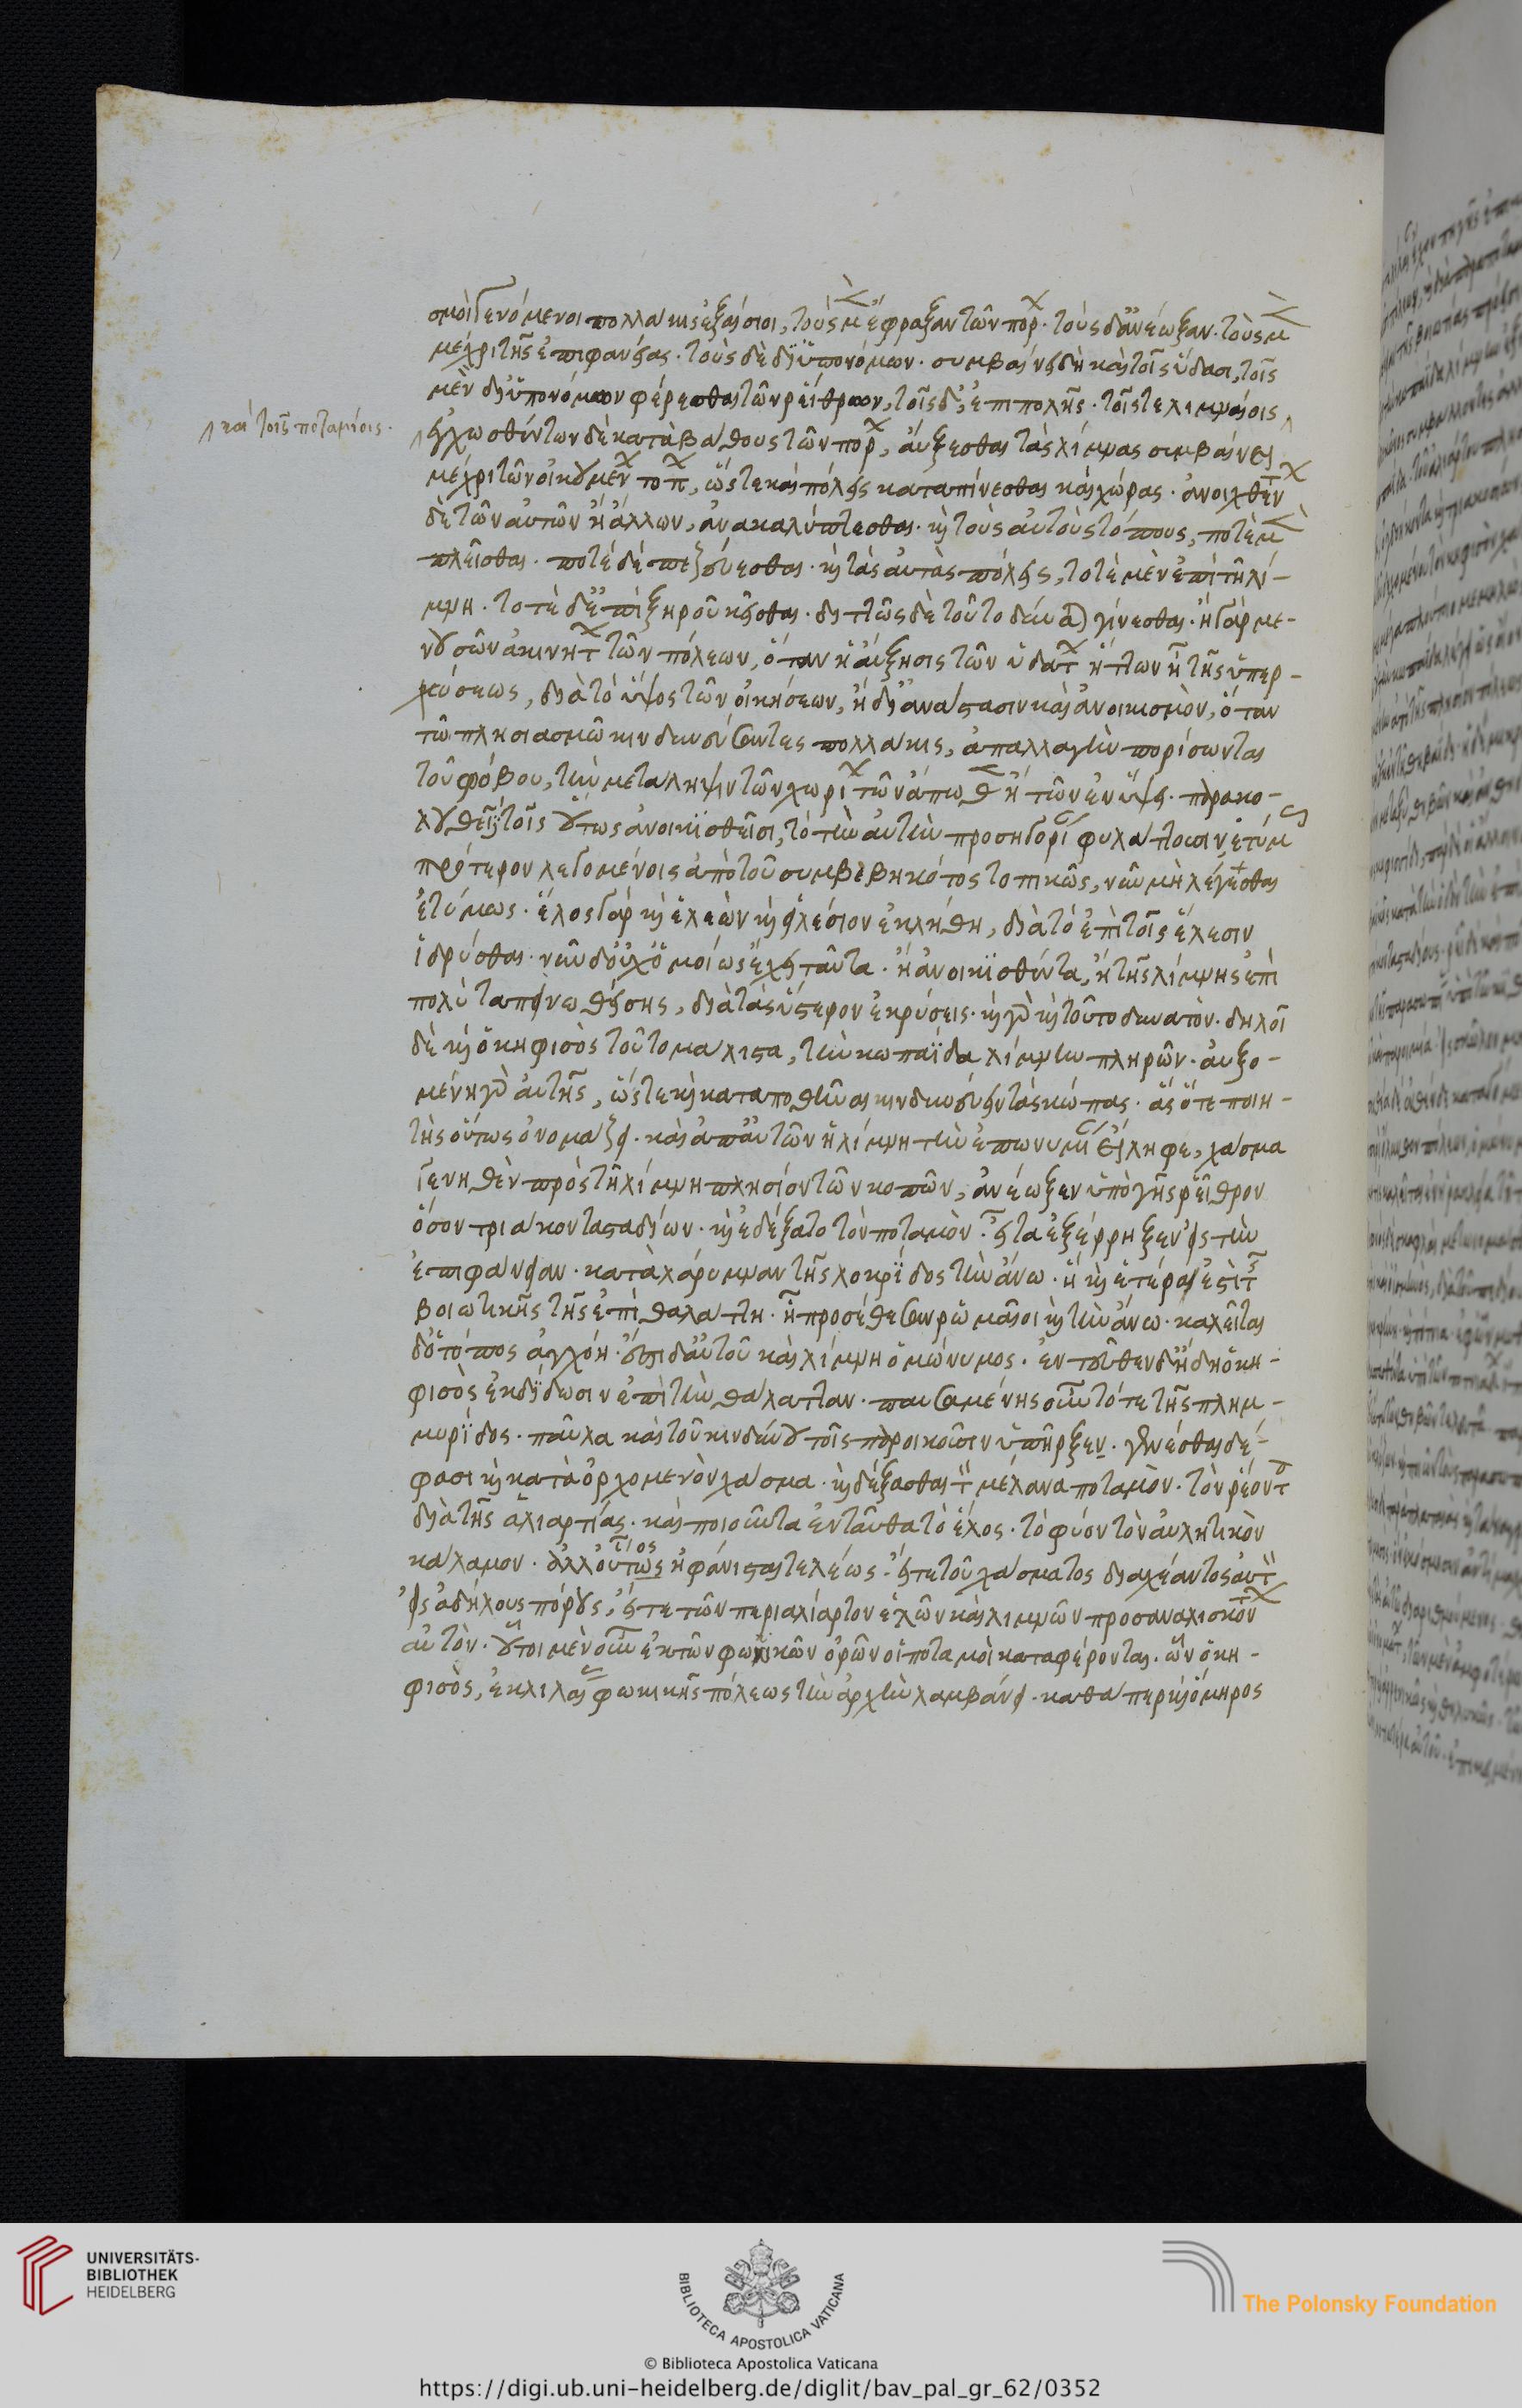 σμοὶ γενόμενοι πολλάκις ἐξαίσιοι, τοὺς μ ἔφραξαν τῶν πόρ. τοὺς δ' ἀνέωξαν. τοὺς μ
μέχρι τῆς ἐπιφανείας. τοὺς δὲ δι' ὑπονόμων. συμβαίνει δὴ καὶ τοῖς ὕδασι, τοῖς
μὲν δι' ὑπονόμων φέρεσθαι τῶν ῥείθρων, τοῖς δ', ἐπιπολῆς. τοῖς τε λιμναίοις
καὶ τοῖς ποταμίοις.
ἐγχωσθέντων δὲ κατὰ βάθους τῶν πόρ, αὔξεσθαι τὰς λίμνας συμβαίνει
μέχρι τῶν οἰκουμέν τόπ, ὥστε καὶ πόλεις καταπίνεσθαι καὶ χώρας. ἀνοιχθέντ
δὲ τῶν αὐτῶν ἢ ἄλλων, ἀνακαλύπτεσθαι. καὶ τοὺς αὐτοὺς τόπους, ποτὲ μ
πλεῖσθαι. ποτὲ δὲ πεζεύεσθαι. καὶ τὰς αὐτὰς πόλεις, τοτὲ μὲν ἐπὶ τῆι λί-
μνηι. τοτὲ δὲ ἐπὶ ξηροῦ κεῖσθαι. διττῶς δὲ τοῦτο δύναται γίνεσθαι. ἢ γὰρ με-
νουσῶν ἀκινήτ τῶν πόλεων, ὅταν ἡ αὔξησις τῶν ὑδάτ ἥττων ἦι τῆς ὑπερ-
χύσεως, διὰ τὸ ὕψος τῶν οἰκήσεων, ἢ δι' ἀνάστασιν καὶ ἀνοικισμὸν, ὅταν
τῶ πλησιασμῶ κινδυνεύσαντες πολλάκις, ἀπαλλαγὴν πορίσωνται
τοῦ φόβου, τὴν μετάληψιν τῶν χωρί τῶν ἄπωθ ἢ τῶν ἐν ὕψει. παρακο-
λουθεῖ τοῖς οὕτως ἀνοικισθεῖσι, τὸ τὴν αὐτὴν προσηγορί φυλάττουσιν ἐτύμ
πρότερον λεγομένοις ἀπὸ τοῦ συμβεβηκότος τοπικῶς, νῦν μὴ λέγεσθαι
ἐτύμως. ἕλος γὰρ καὶ ἑλεὼν καὶ εἱλέσιον ἐκλήθη, διὰ τὸ ἐπὶ τοῖς ἕλεσιν
ἱδρύσθαι. νῦν δ' οὐχ ὁμοίως ἔχει ταῦτα. ἢ ἀνοικισθέντα, ἢ τῆς λίμνης ἐπὶ
πολὺ ταπεινωθείσης, διὰ τὰς ὕστερον ἐκρύσεις. καὶ γὰρ καὶ τοῦτο δυνατὸν. δηλοῖ
δὲ καὶ ὁ κηφισὸς τοῦτο μάλιστα, τὴν κωπαΐδα λίμνην πληρῶν. αὐξο-
μένη γὰρ αὐτῆς, ὥστε καὶ καταποθῆναι κινδυνεύειν τὰς κώπας. ἃς ὅτε ποιη-
τὴς οὕτως ὀνομάζει. καὶ ἀπ' αὐτῶν ἡ λίμνη τὴν ἐπωνυμί εἴληφε, χάσμα
γενηθὲν πρὸς τῆι λίμνη πλησίον τῶν κοπῶν, ἀνέωξεν ὑπὸ γῆς ῥεῖθρον
ὅσον τριάκοντα σταδίων. καὶ ἐδέξατο τὸν ποταμὸν. εἶτα ἐξέρρηξεν εἰς τὴν
ἐπιφάνειαν. κατὰ λάρυμναν τῆς λοκρίδος τὴν ἄνω. ἡ καὶ ἑτέρα ἐστὶ τ
βοιωτικῆς τῆς ἐπὶ θαλάττη. ἧι προσέθεσαν ῥωμαῖοι καὶ τὴν ἄνω. καλεῖται
δ' ὁ τόπος ἀγχόη. ἔστι δ' αὐτοῦ καὶ λίμνη ὁμώνυμος. ἐντεῦθεν δ' ἤδη ὁ κη-
φισὸς ἐκδίδωσιν ἐπὶ τὴν θάλατταν. παυσαμένης οὖν τότε τῆς πλημ-
μυρίδος. παῦλα καὶ τοῦ κινδύνου τοῖς παροικοῦσιν ὑπῆρξεν. γενέσθαι δέ
φασι καὶ κατὰ ὀρχομενὸν χάσμα. καὶ δέξασθαι τ μέλανα ποταμὸν. τὸν ῥέοντ
διὰ τῆς ἁλιαρτίας. καὶ ποιοῦντα ἐνταῦθα τὸ ἕλος. τὸ φύον τὸν αὐλητικὸν
κάλαμον. ἀλλ' οὕτως ἠφάνισται τελέως. εἴτε τοῦ χάσματος διαχέαντος αὐτ
εἰς ἀδήλους πόρους, εἴτε τῶν περὶ ἁλίαρτον ἑλῶν καὶ λιμνῶν προσαναλισκόντ
αὐτὸν. οὗτοι μὲν οὖν ἐκ τῶν φωκικῶν ὀρῶν οἱ ποταμοὶ καταφέρονται. ὧν ὁ κη-
φισὸς, ἐκ λιλαί φωκικῆς πόλεως τὴν ἀρχὴν λαμβάνει. καθάπερ καὶ ὅμηρος
UNIVERSITÄTS-
BIBLIOTHEK
HEIDELBERG
BIBLIOTECA APOSTOLICA VATICANA
The Polonsky Foundation
© Biblioteca Apostolica Vaticana
https://digi.ub.uni-heidelberg.de/diglit/bav_pal_gr_62/0352